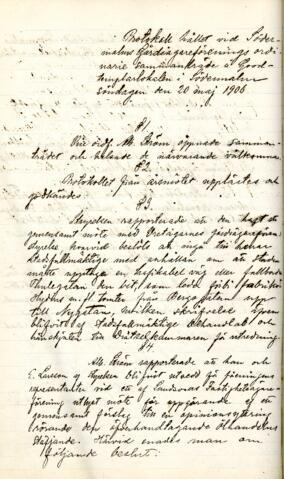 Protokoll hållet vid Söder-
malms Gårdsägareförenings ordi-
narie sammankomst å Good-
templarlokalen i Södermalm
söndagen den 20 maj 1906.
§1
Vice ordf. M. Ström öppnade samman-
trädet och helsade de närvarande välkomna.
§2.
Protokollet från årsmötet upplästes och
godkändes.
§3.
Styrelsen rapporterade att den haft ett
gemensamt möte med Östagernes gårdsägareförenings
styrelse, hvarvid beslöts att ingå till herrar
Stadsfullmäktige med anhållan om att Staden
måtte upptaga en trafikabel väg eller fullborda
Thulegatan den bit, som ledde förbi fabrikör
m.fl. tomter från Bergsgatan upp
till Nygatan, hvilken skrifvelse äfven
blifvit af Stadsfullmäktige behandlad och
hänskjuten till Drätselkammaren för utredning.
§4
M. Ström rapporterade att han och
E. Larsson af styrelsen blifvit utsedd att föreningens
representanter vid ett af Sundsvalls Fastighetsägare-
förening utlyst möte för uppgörande af ett
gemensamt förslag till en opinionsyttring
rörande den
Härvid enades man om
följande beslut: